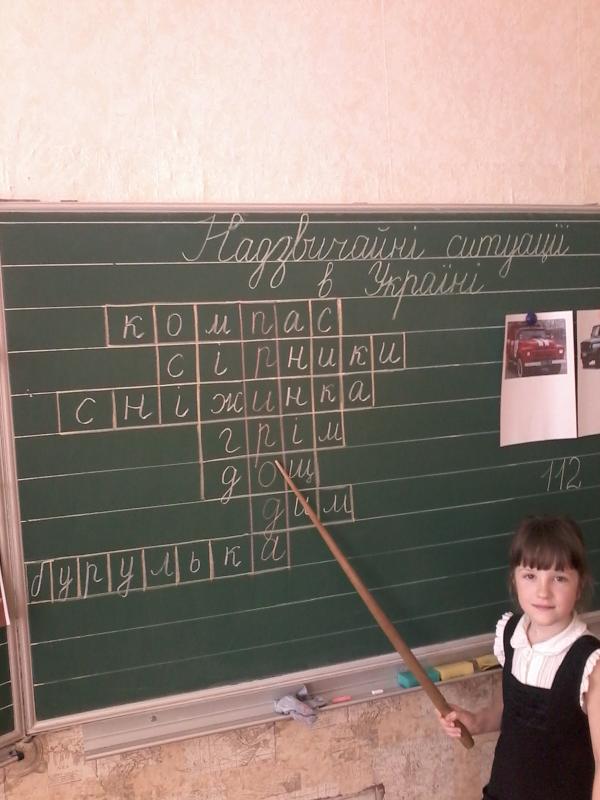 Надзвичайні ситуації
в Україні
компас
сірники
сніжинка
грім
дощ
112
дим
бурулька